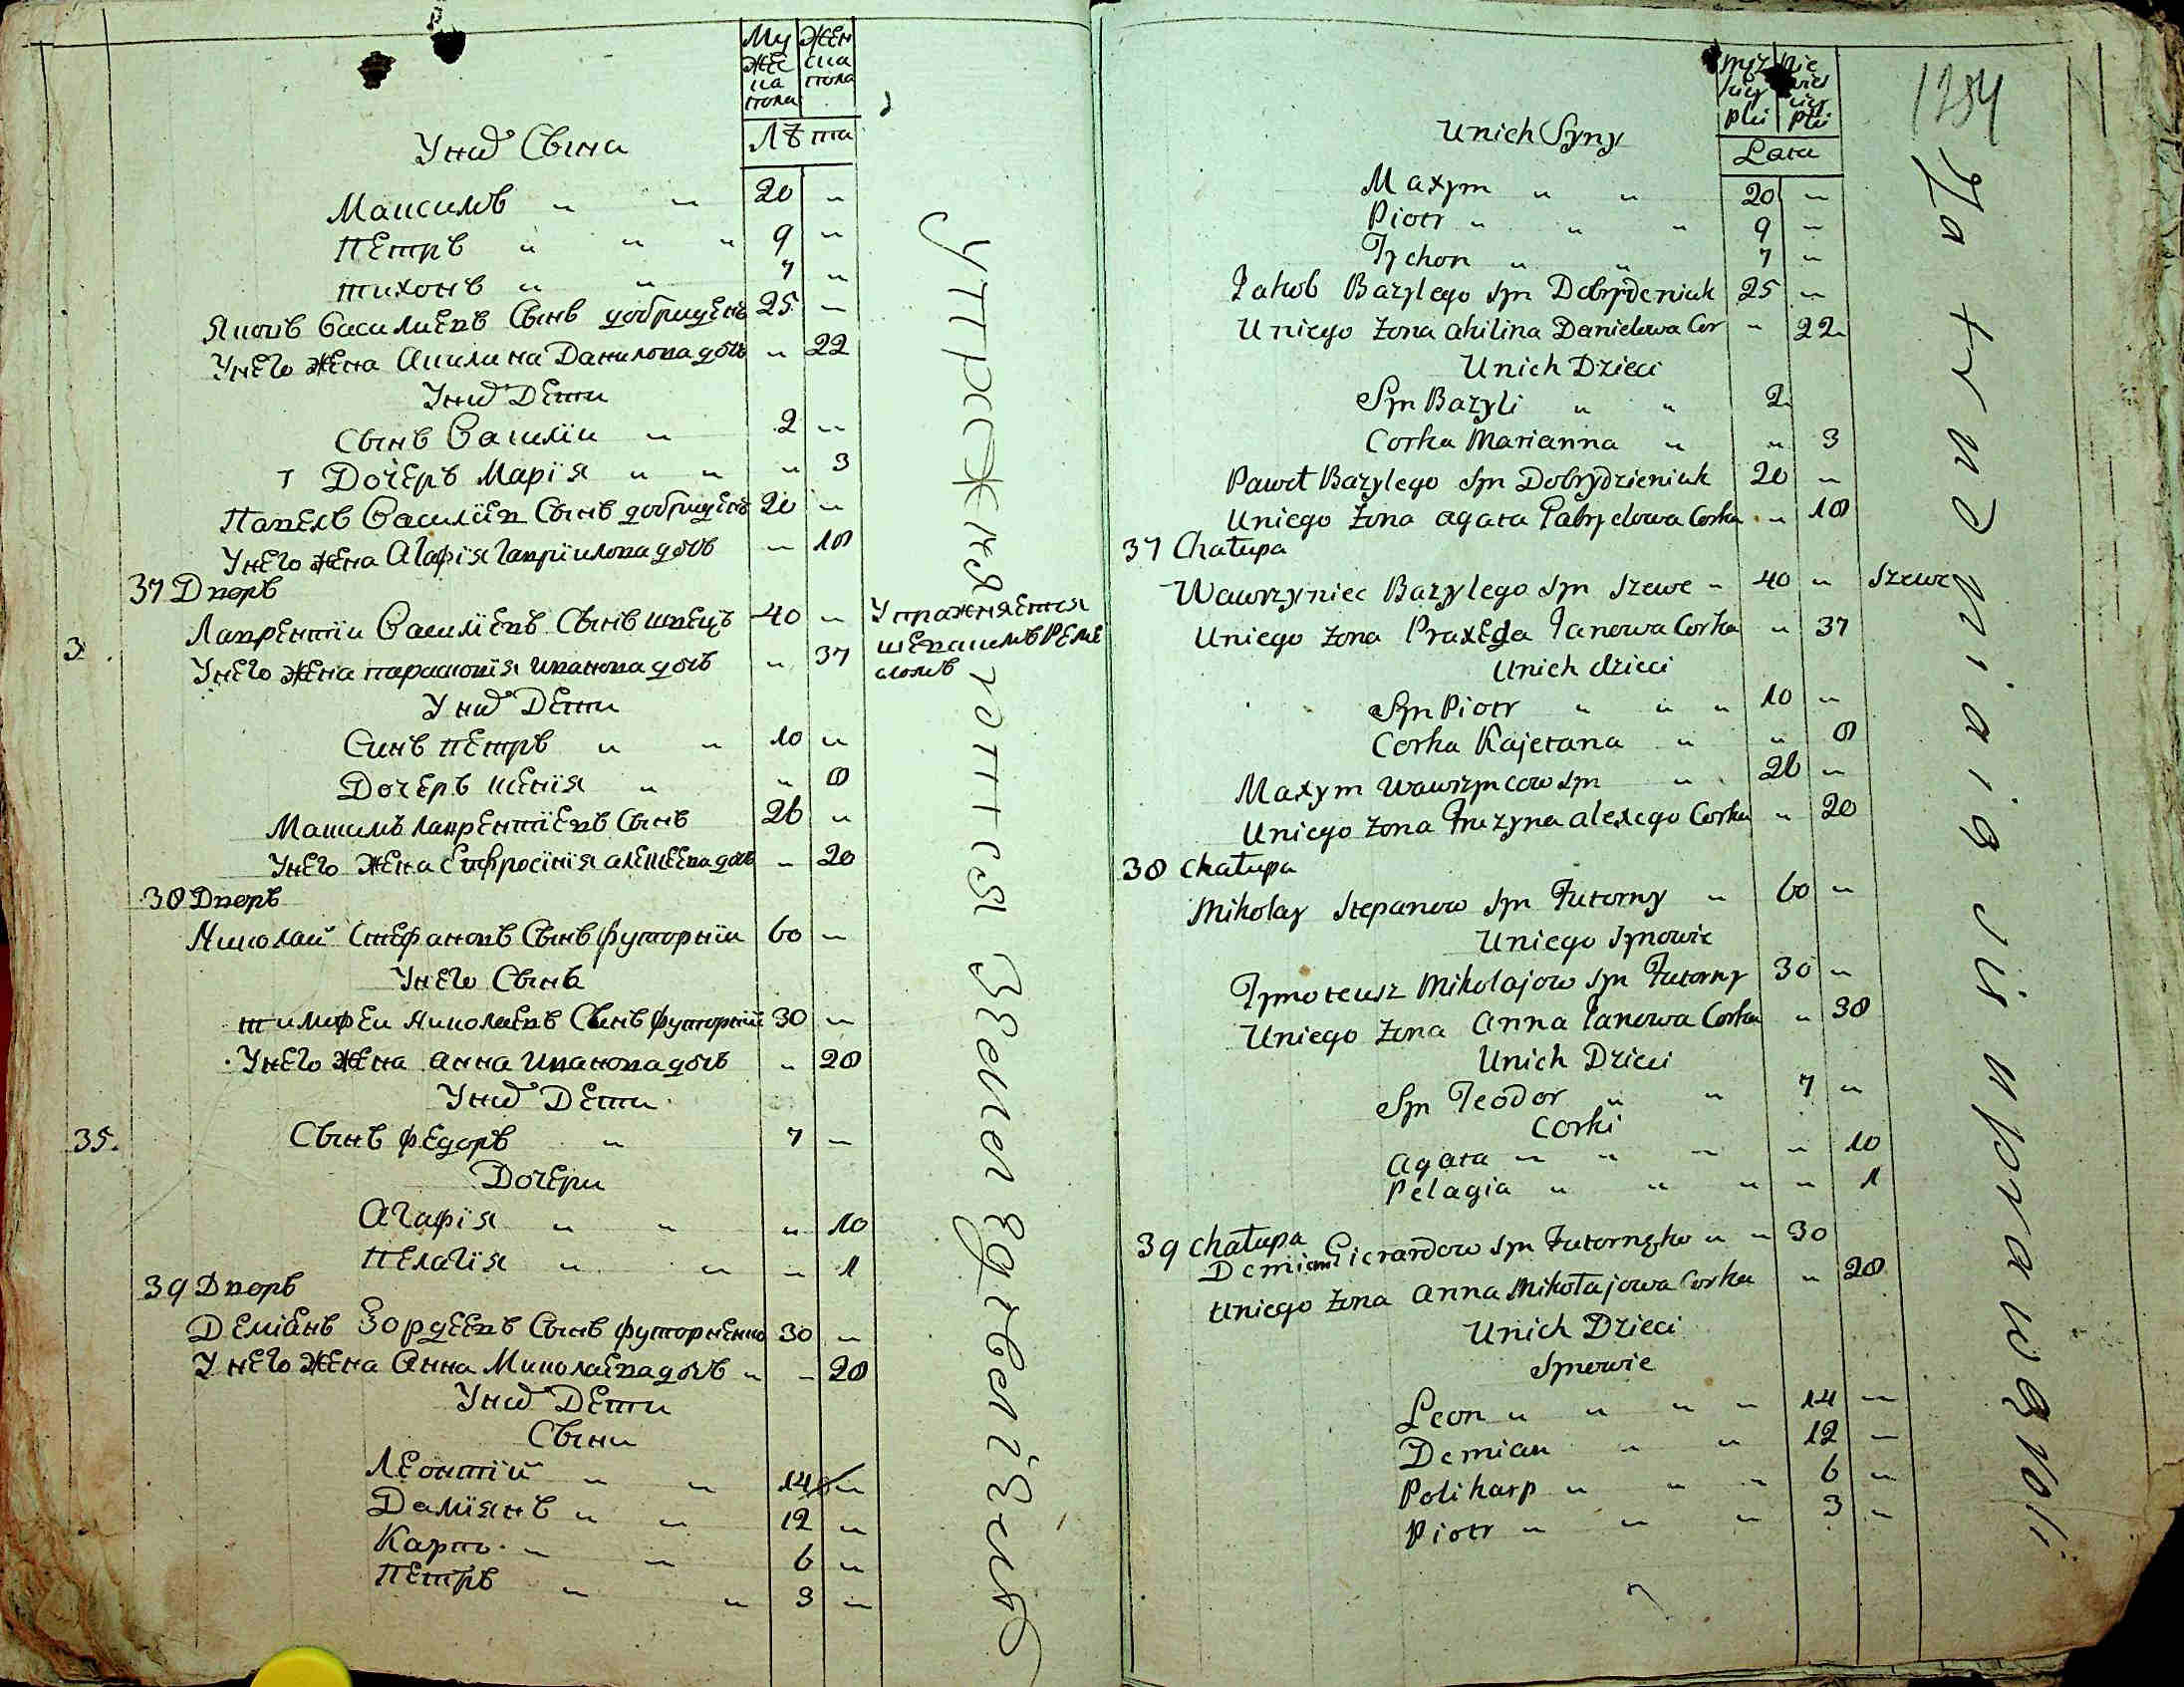 Му
жес
ка
пола
Жен
ска
пола
Лѣта
Унихъ Сына
Максимъ " " 20 "
Петръ " " " 9 "
тихонъ " " 7 "
Яковъ Василиевъ Сынъ добриденъ 25 "
Унего жена Акилина Данилова дочь " 22
Унихъ Дети
Сынъ Василiи " 2 "
Дочеръ Марiя " " " 3
Павелъ Василiев Сынъ добриденъ 20 "
Унего жена Агафiя Гаврiилова дочъ " 18
37 Дворъ
3. Лаврентiи Василiевъ Сынъ швецъ 40 " Упражняется
Унего жена параскевiя иванова дочъ " 37 шевскимъ реме
сломъ
Унихъ Дети
Синъ петръ " " 10 "
Дочеръ ксенiя " " 8
Максимъ лаврентiевъ Сынъ 26 "
Унего жена Ефросiнiя алексеева дочъ " 20
38 Дворъ
Николай Стефановъ Сынъ футорнiи 60 "
Унего Сынъ
тимофеи Николаевъ Сынъ футорнiй 30 "
Унего жена анна иванова дочъ " 28
Унихъ Дети
35. Сынъ федоръ " 7 "
Дочери
Агафiя " " " 10
Пелагiя " " " 1
39 Дворъ
Демiанъ Гордеевъ Сынъ футорненко 30 "
У него жена Анна Миколаева дочъ " " 28
Унихъ Дети
Сыни
Леонтiй " " 14 "
Дамiянъ " " 12 "
Карпъ " " 6 "
Петръ " " 3 "
упражняются земледелиемъ
1254
męz
kiey
płci
nie
wies
ciey
płci
Lata
Unich Syny
Maxym " " 20 "
Piotr " " " 9 "
Tychon " " 7 "
Jakob Bazylego syn Dobrydeniuk 25 "
Uniego żona ahilina Danielowa Cor " 22
Unich Dzieci
Syn Bazyli " " 2
Corka Marianna " " 3
Paweł Bazylego syn Dobrydzieniuk 20 "
Uniego żona agata Gabryelowa Corka " 18
37 Chałupa
Wawrzyniec Bazylego syn szewc " 40 " szewc
Uniego żona Praxeda Janowa Corka " 37
Unich dzieci
Syn Piotr " " " 10 "
Corka Kajetana " " 8
Maxym Wawrzyncow syn " 26 "
Uniego żona Fruzyna alexego Corka " 20
38 chałupa
Mikolay Stepanow syn Futorny " 60 "
Uniego synowie
Tymoteusz Mikolajow syn Futorny 30 "
Uniego żona anna Janowa Corka " 38
Unich Dzieci
Syn Teodor " " 7 "
Corki
agata " " " " 10
Pelagia " " " " 1
39 chałupa
Demian Gierardow syn Futornyko " " 30
Uniego żona anna Mikołajowa Corka " 28
Unich Dzieci
Synowie
Leon " " " " 14 "
Demian " " 12 "
Polikarp " " " 6 "
Piotr " " " 3 "